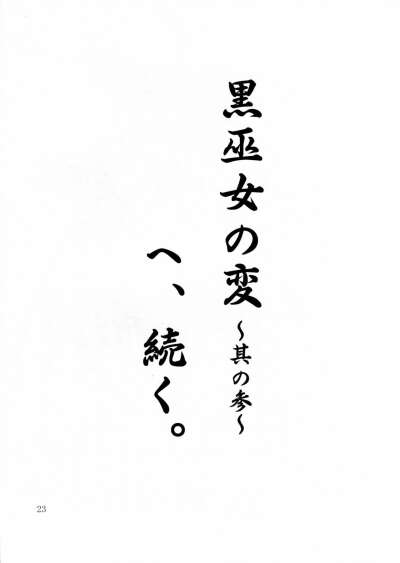 黒巫女の変~其の参~
へ、続く。
23